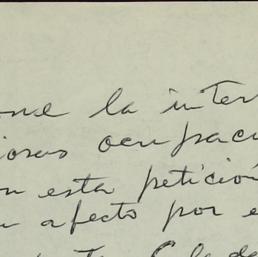 one la inter
iosas ocupaci
n esta petición
u afecto por e